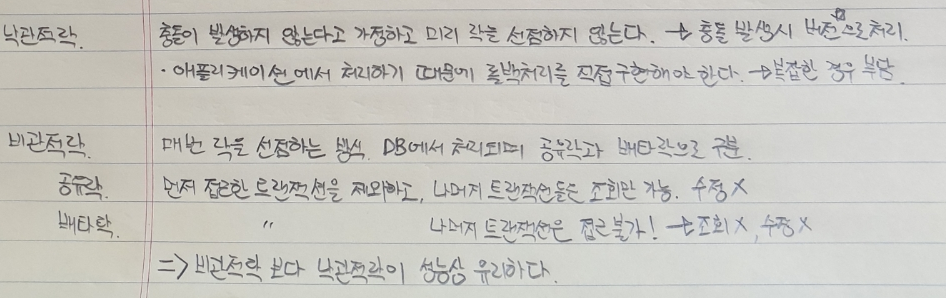 낙관적락. 충돌이 발생하지 않는다고 가정하고 미리 락을 선점하지 않는다. → 충돌 발생시 버전으로 처리.
· 애플리케이션에서 처리하기 때문에 롤백처리를 직접 구현해야 한다. → 복잡한 경우 부담
비관적락. 매번 락을 선점하는 방식. DB에서 처리되며 공유락과 배타락으로 구분.
공유락. 먼저 접근한 트랜잭션을 제외하고, 나머지 트랜잭션들은 조회만 가능. 수정 X
배타락. 〃 나머지 트랜잭션은 접근불가! → 조회 X, 수정 X
=> 비관적락 보다 낙관적락이 성능상 유리하다.